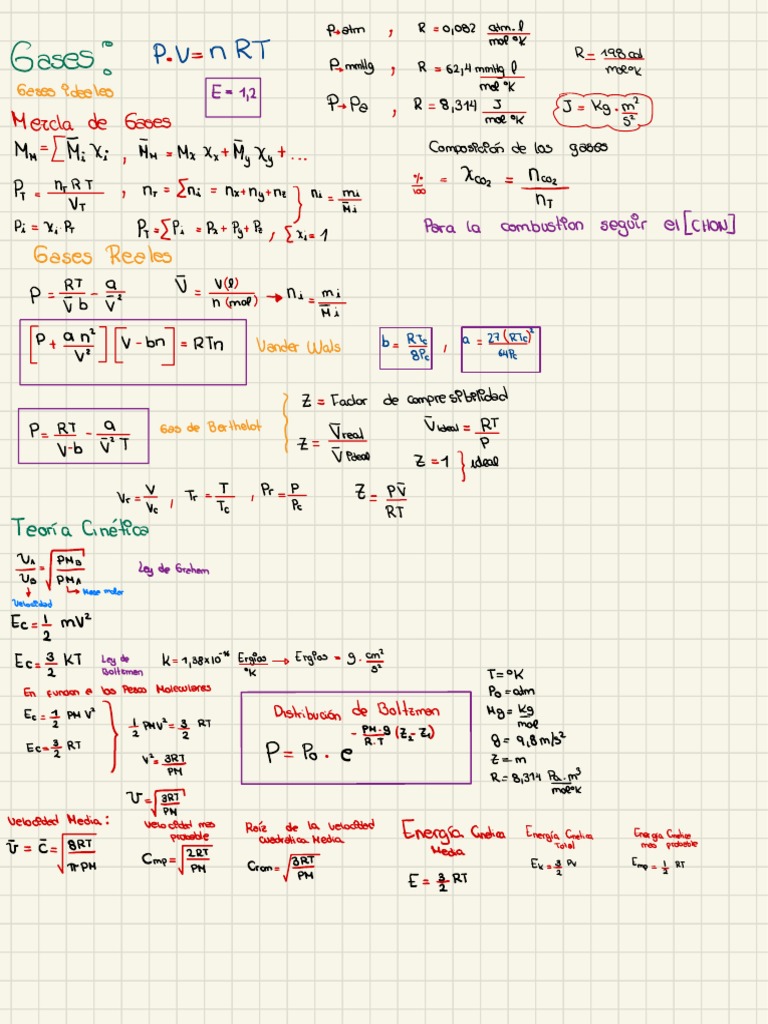 Gases: P.V = n RT
P→atm , R = 0,082 atm.l / mol°K
P→mmHg , R = 62,4 mmHg l / mol°K
R = 1,98 cal / mol°K
P→Pa , R = 8,314 J / mol°K
J = Kg · m² / s²
Gases ideales
E = 1,2
Mezcla de Gases
M_M = ∑ M̄i χi , M̄_M = Mx χx + M̄y χy + ...
Composición de los gases
% / 100 = χCO₂ = nCO₂ / nT
P_T = nT RT / V_T , n_T = ∑ni = nx+ny+nz } ni = mi / M̄i
Pi = χi . P_T P_T = ∑Pi = Px + Py + Pz , ∑χi = 1
Para la combustion seguir el [CHON]
Gases Reales
P = RT / V̄ b - a / V̄² V̄ = V(l) / n (mol) → ni = mi / M̄i
[P + a n² / V²] [V - bn] = RTn
Vander Wals
b = RTc / 8Pc , a = 27 (RTc)² / 64Pc
P = RT / V-b - a / V̄² T
Gas de Berthelot
Z = Factor de compresibilidad
Z = V̄real / V̄ideal
V̄ideal = RT / P
Z = 1 } ideal
Vr = V / Vc , Tr = T / Tc , Pr = P / Pc Z = PV̄ / RT
Teoría Cinética
υA / υB = √ PMB / PMA
Ley de Graham
Velocidad
Masa molar
Ec = 1/2 mV²
Ec = 3/2 KT
Ley de Boltzmen
K = 1,38x10⁻¹⁶ Ergios / °K → Ergios = g . cm² / s²
En funcion a los Pesos Moleculares
Ec = 1/2 PM V²
Ec = 3/2 RT
1/2 PMV² = 3/2 RT
V² = 3RT / PM
υ = √ 3RT / PM
Distribución de Boltzmen
P = Po . e^ - PM.g / R.T (Z₂ - Z₁)
T = °K
Po = atm
Mg = Kg / mol
g = 9,8 m/s²
Z = m
R = 8,314 Pa.m³ / mol°K
Velocidad Media:
ῡ = C̄ = √ 8RT / π PM
Velocidad mas probable
Cmp = √ 2RT / PM
Raíz de la velocidad cuadrática Media
Crcm = √ 3RT / PM
Energía Cinetica Media
E = 3/2 RT
Energía Cinetica Total
Ek = 3/2 PV
Energia Cinetica mas probable
Emp = 1/2 RT